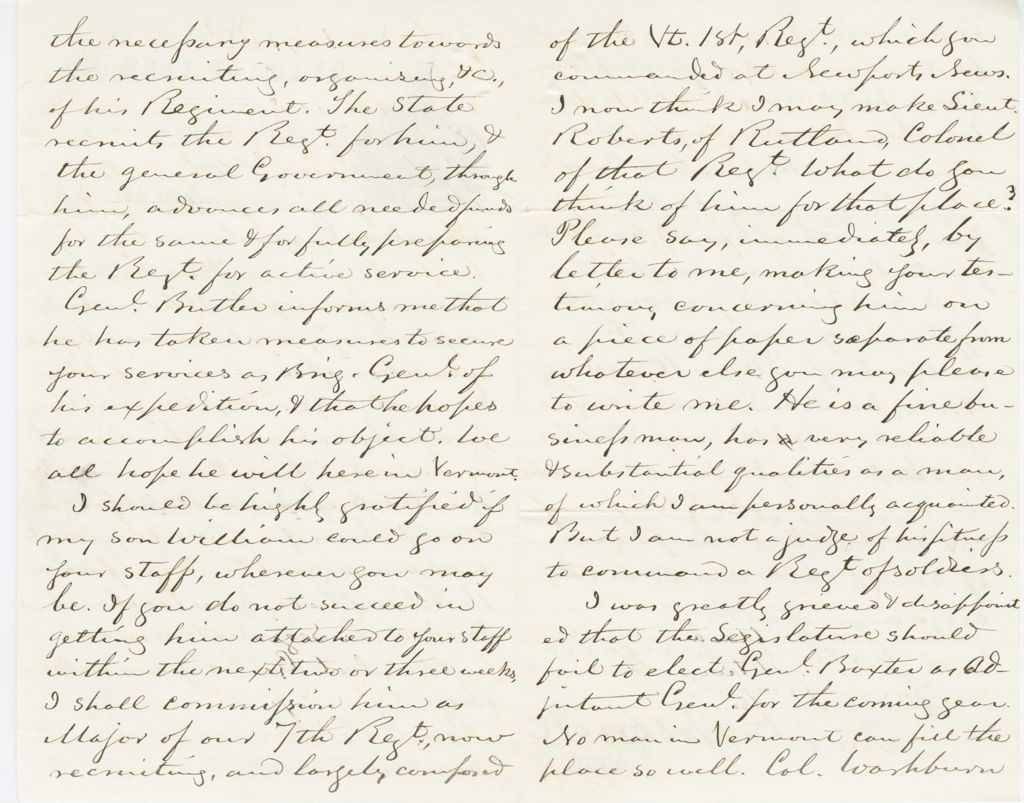 the necessary measures towards
the recruiting, organising, &c.,
of his Regiment. The State
recruits the Regt. for him, &
the general Government, through
him, advances all needed funds
for the same & for fully preparing
the Regt. for active service.
Genl. Butler informs me that
he has taken measures to secure
your services as Brig. Genl. of
his expedition, & that he hopes
to accomplish his object. We
all hope he will here in Vermont.
I should be highly gratified if
my son William could go on
your staff, wherever you may
be. If you do not succeed in
getting him attached to your staff
within the next two or three weeks,
I shall commission him as
Major of our 7th Regt., now
recruiting, and largely composed
of the Vt. 1st, Regt., which you
commanded at Newports News.
I now think I may make Lieut.
Roberts, of Rutland, Colonel
of that Regt. What do you
think of him for that place?
Please say, immediately, by
letter to me, making your tes-
timony concerning him on
a piece of paper separate from
whatever else you may please
to write me. He is a fine bu-
siness man, has very reliable
& substantial qualities as a man,
of which I am personally acquainted.
But I am not a judge of his fitness
to command a Regt of soldiers.
I was greatly grieved & disappoint
ed that the Legislature should
fail to elect Genl. Baxter as Ad-
jutant Genl. for the coming year.
No man in Vermont can fill the
place so well. Col. Washburn